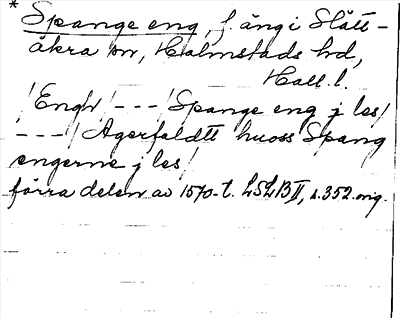 * Spange eng, f. äng i Slätt-
åkra sn, Halmstads hd,
Hall. l.
/Engh/ - - - /Spange eng j les/
- - - / Agerfaldtt huoss Spang
engerne j les/
förra delen av 1570-t. LSLB II, s. 352. orig.